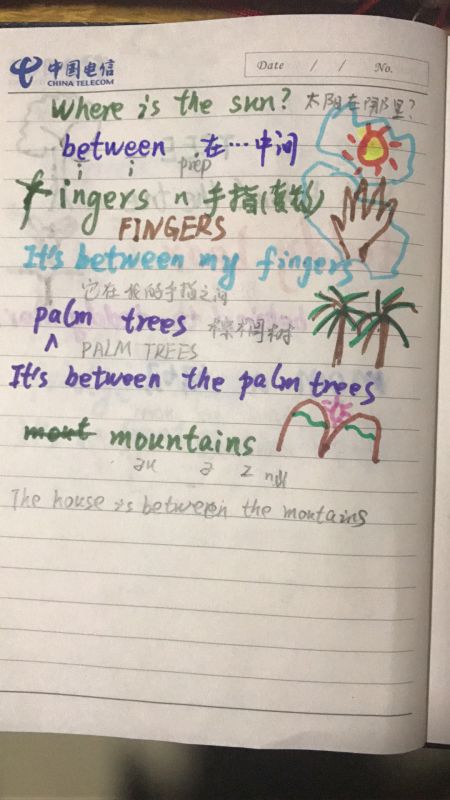 中国电信
CHINA TELECOM
Date / / No.
Where is the sun? 太阳在哪里?
between 在…中间
prep
fingers n 手指(复数)
FINGERS
It's between my fingers
它在我的手指之间
palm trees 棕榈树
PALM TREES
It's between the palm trees
mont mountains
The house is between the montains